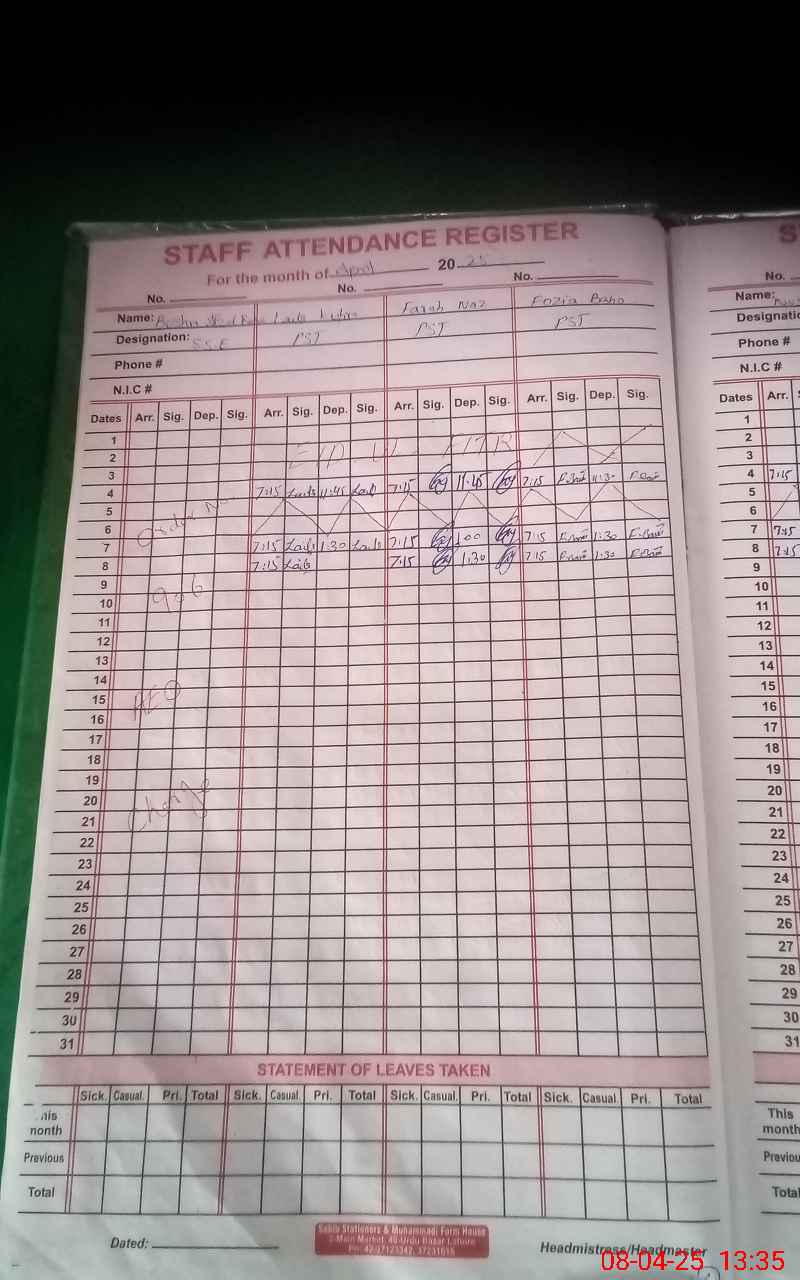 STAFF ATTENDANCE REGISTER
For the month of April 20 25
No. No. No.
Name: Farah Naz Fozia Bano
Designation: S.S.E PST PST PST
Phone #
N.I.C #
Dates Arr. Sig. Dep. Sig. Arr. Sig. Dep. Sig. Arr. Sig. Dep. Sig. Arr. Sig. Dep. Sig.
1
2
3
4 7:15 11:45 7:15 11:45 7:15 11:30
5
6
7 7:15 1:30 7:15 1:00 7:15 1:30
8 7:15 7:15 1:30 7:15 1:30
9
10
11
12
13
14
15
16
17
18
19
20
21
22
23
24
25
26
27
28
29
30
31
Order No
906
AEO
Charge
STATEMENT OF LEAVES TAKEN
Sick. Casual. Pri. Total Sick. Casual. Pri. Total Sick. Casual. Pri. Total Sick. Casual. Pri. Total
This month
Previous
Total
Dated:
Headmistress/Headmaster
No.
Name:
Phone #
N.I.C #
Dates Arr.
1
2
3
4 7:15
5
6
7 7:15
8 7:15
9
10
11
12
13
14
15
16
17
18
19
20
21
22
23
24
25
26
27
28
29
30
31
This
month
Total
08-04-25 13:35